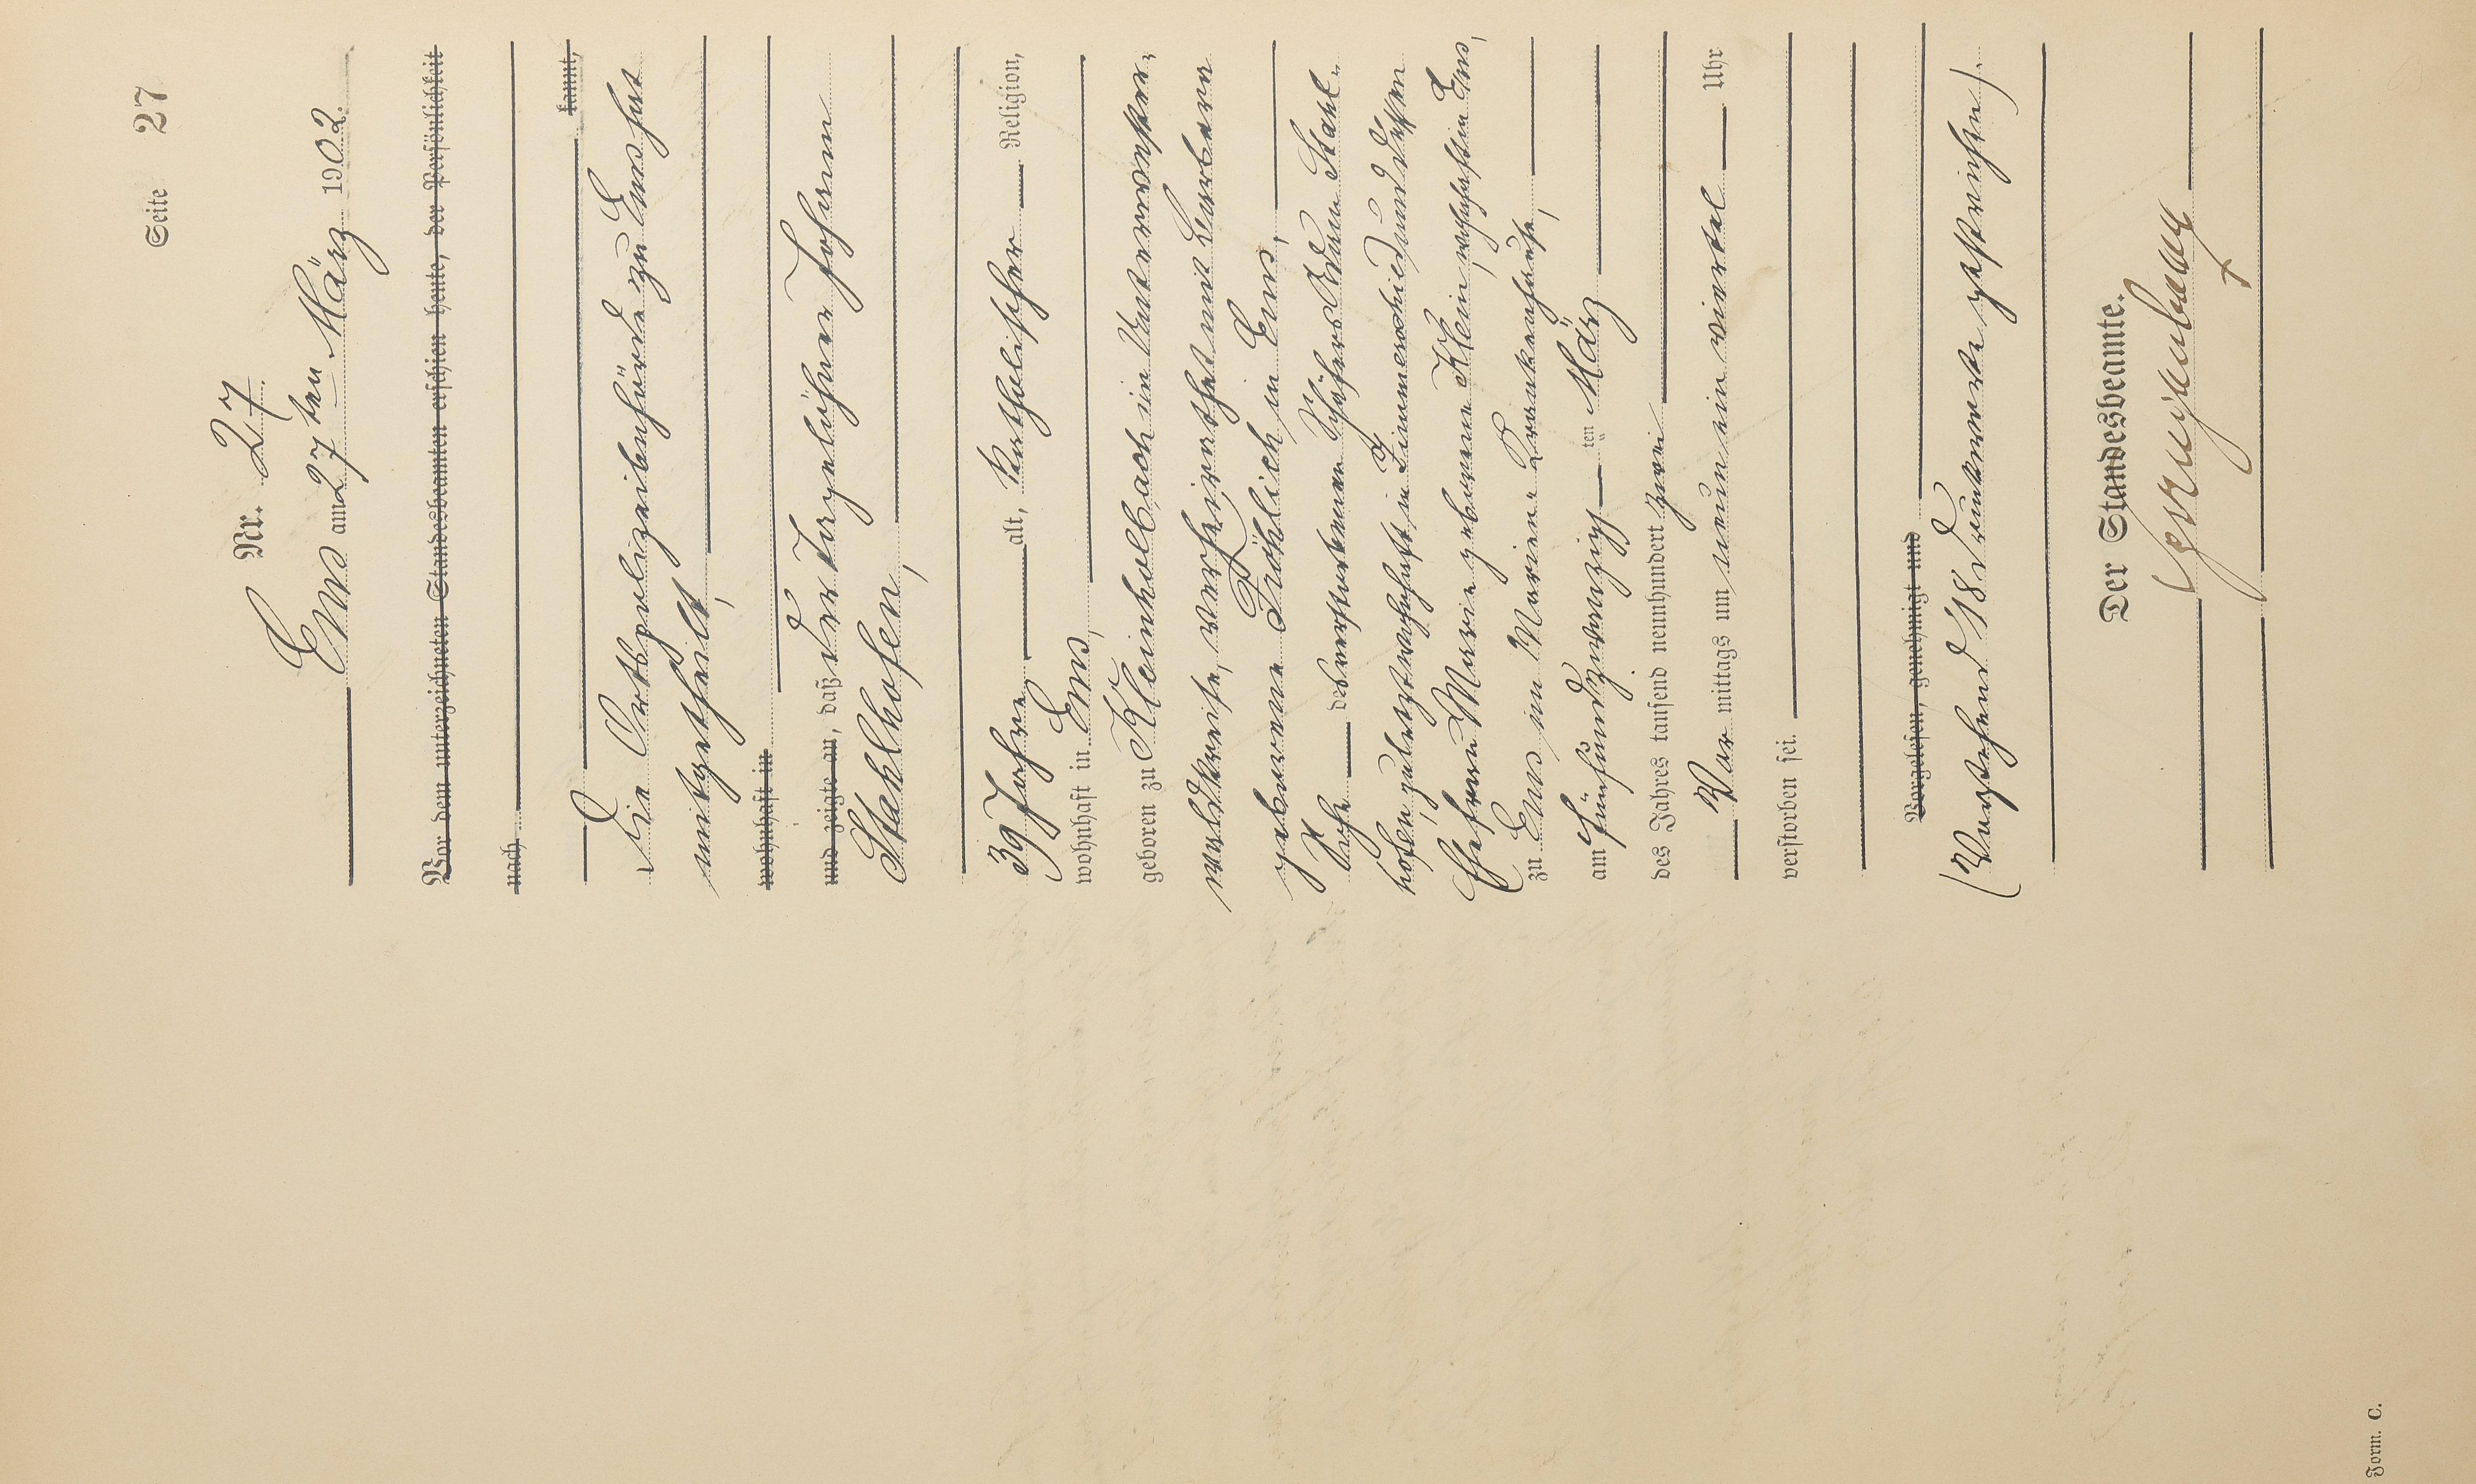 Seite 27
Nr. 27
Ems am 27ten März 1902.
Vor dem unterzeichneten Standesbeamten erschien heute, der Persönlichkeit
nach
kannt,
Die Ortspolizeibehörde zu Ems hat
mitgetheilt,
wohnhaft in
und zeigte an, daß der Tagelöhner Johann
Stahlhofen,
39 Jahre alt, katholischer Religion,
wohnhaft in Ems,
geboren zu Kleinholbach im Unterwester-
waldkreise, verheirathet mit Barbara
geborene Fröhlich in Ems,
Sohn des verstorbenen Schäfers Adam Stahl-
hofen, zuletzt wohnhaft in Zimmerschied und dessen
Ehefrau Maria geborene Klein, wohnhaft in Ems,
zu Ems im Marien-Krankenhause,
am fünfundzwanzig ten März
des Jahres tausend neunhundert zwei
Vor mittags um neun ein viertel Uhr
verstorben sei.
Vorgelesen, genehmigt und
(Vorstehend 18 Druckworte gestrichen).
Der Standesbeamte.
Form. C.